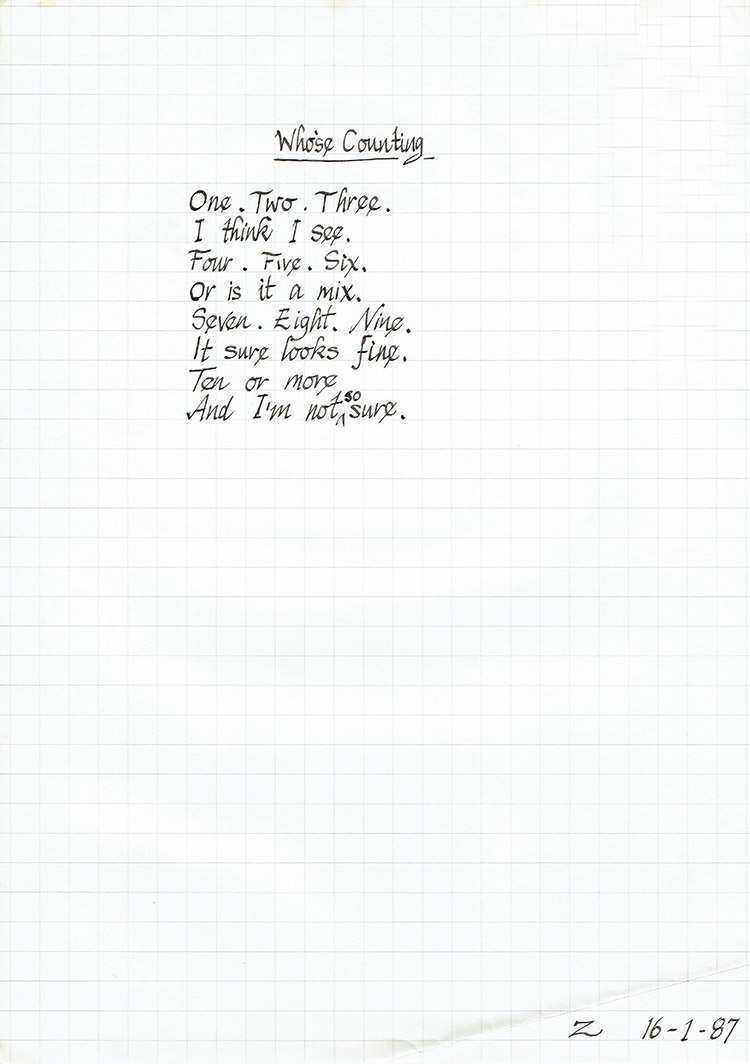 Who'se Counting
One . Two . Three .
I think I see.
Four . Five . Six.
Or is it a mix.
Seven . Eight. Nine.
It sure looks fine.
Ten or more
And I'm not so sure.
Z 16-1-87